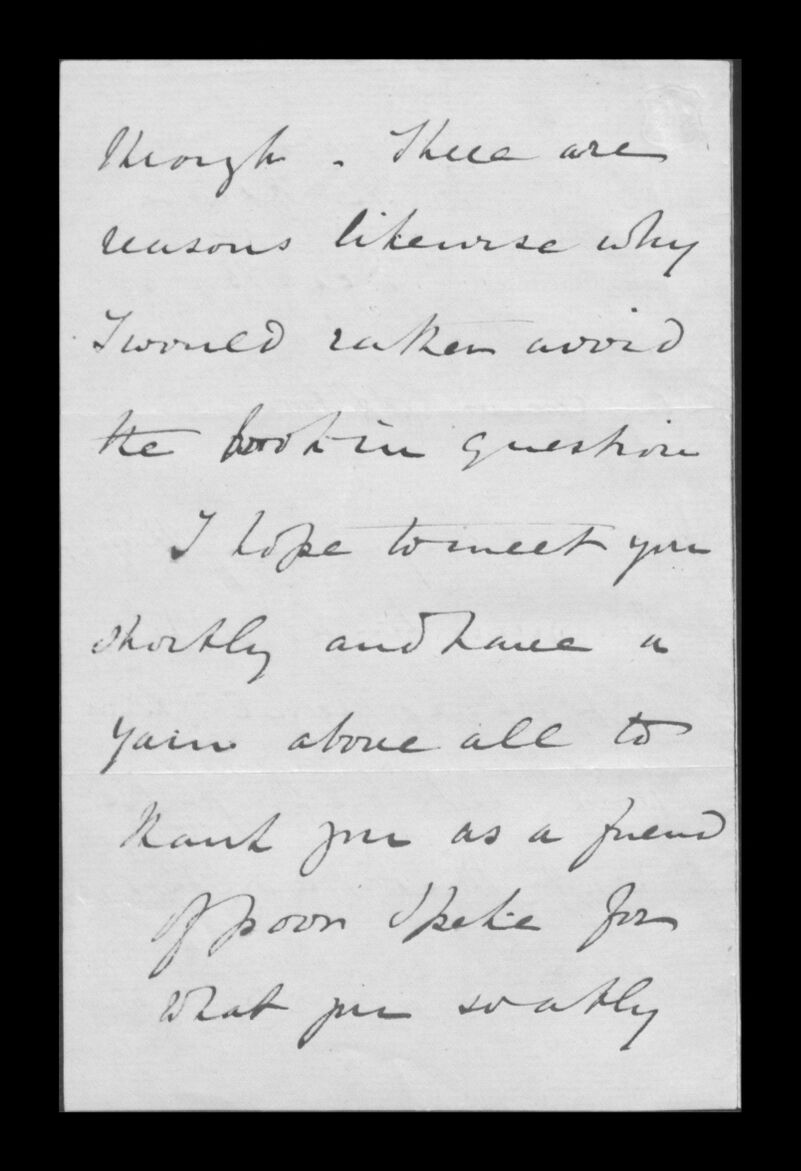 though. There are
reasons likewise why
I would rather avoid
the book in question
I hope to meet you
shortly and have a
yarn above all to
thank you as a friend
of poor Speke for
what you so ably